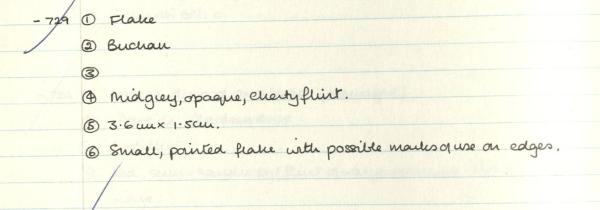 -729 ① Flake
② Buchan
③
④ Midgrey, opaque, cherty flint.
⑤ 3.6cm x 1.5cm.
⑥ Small, pointed flake with possible marks of use on edges.